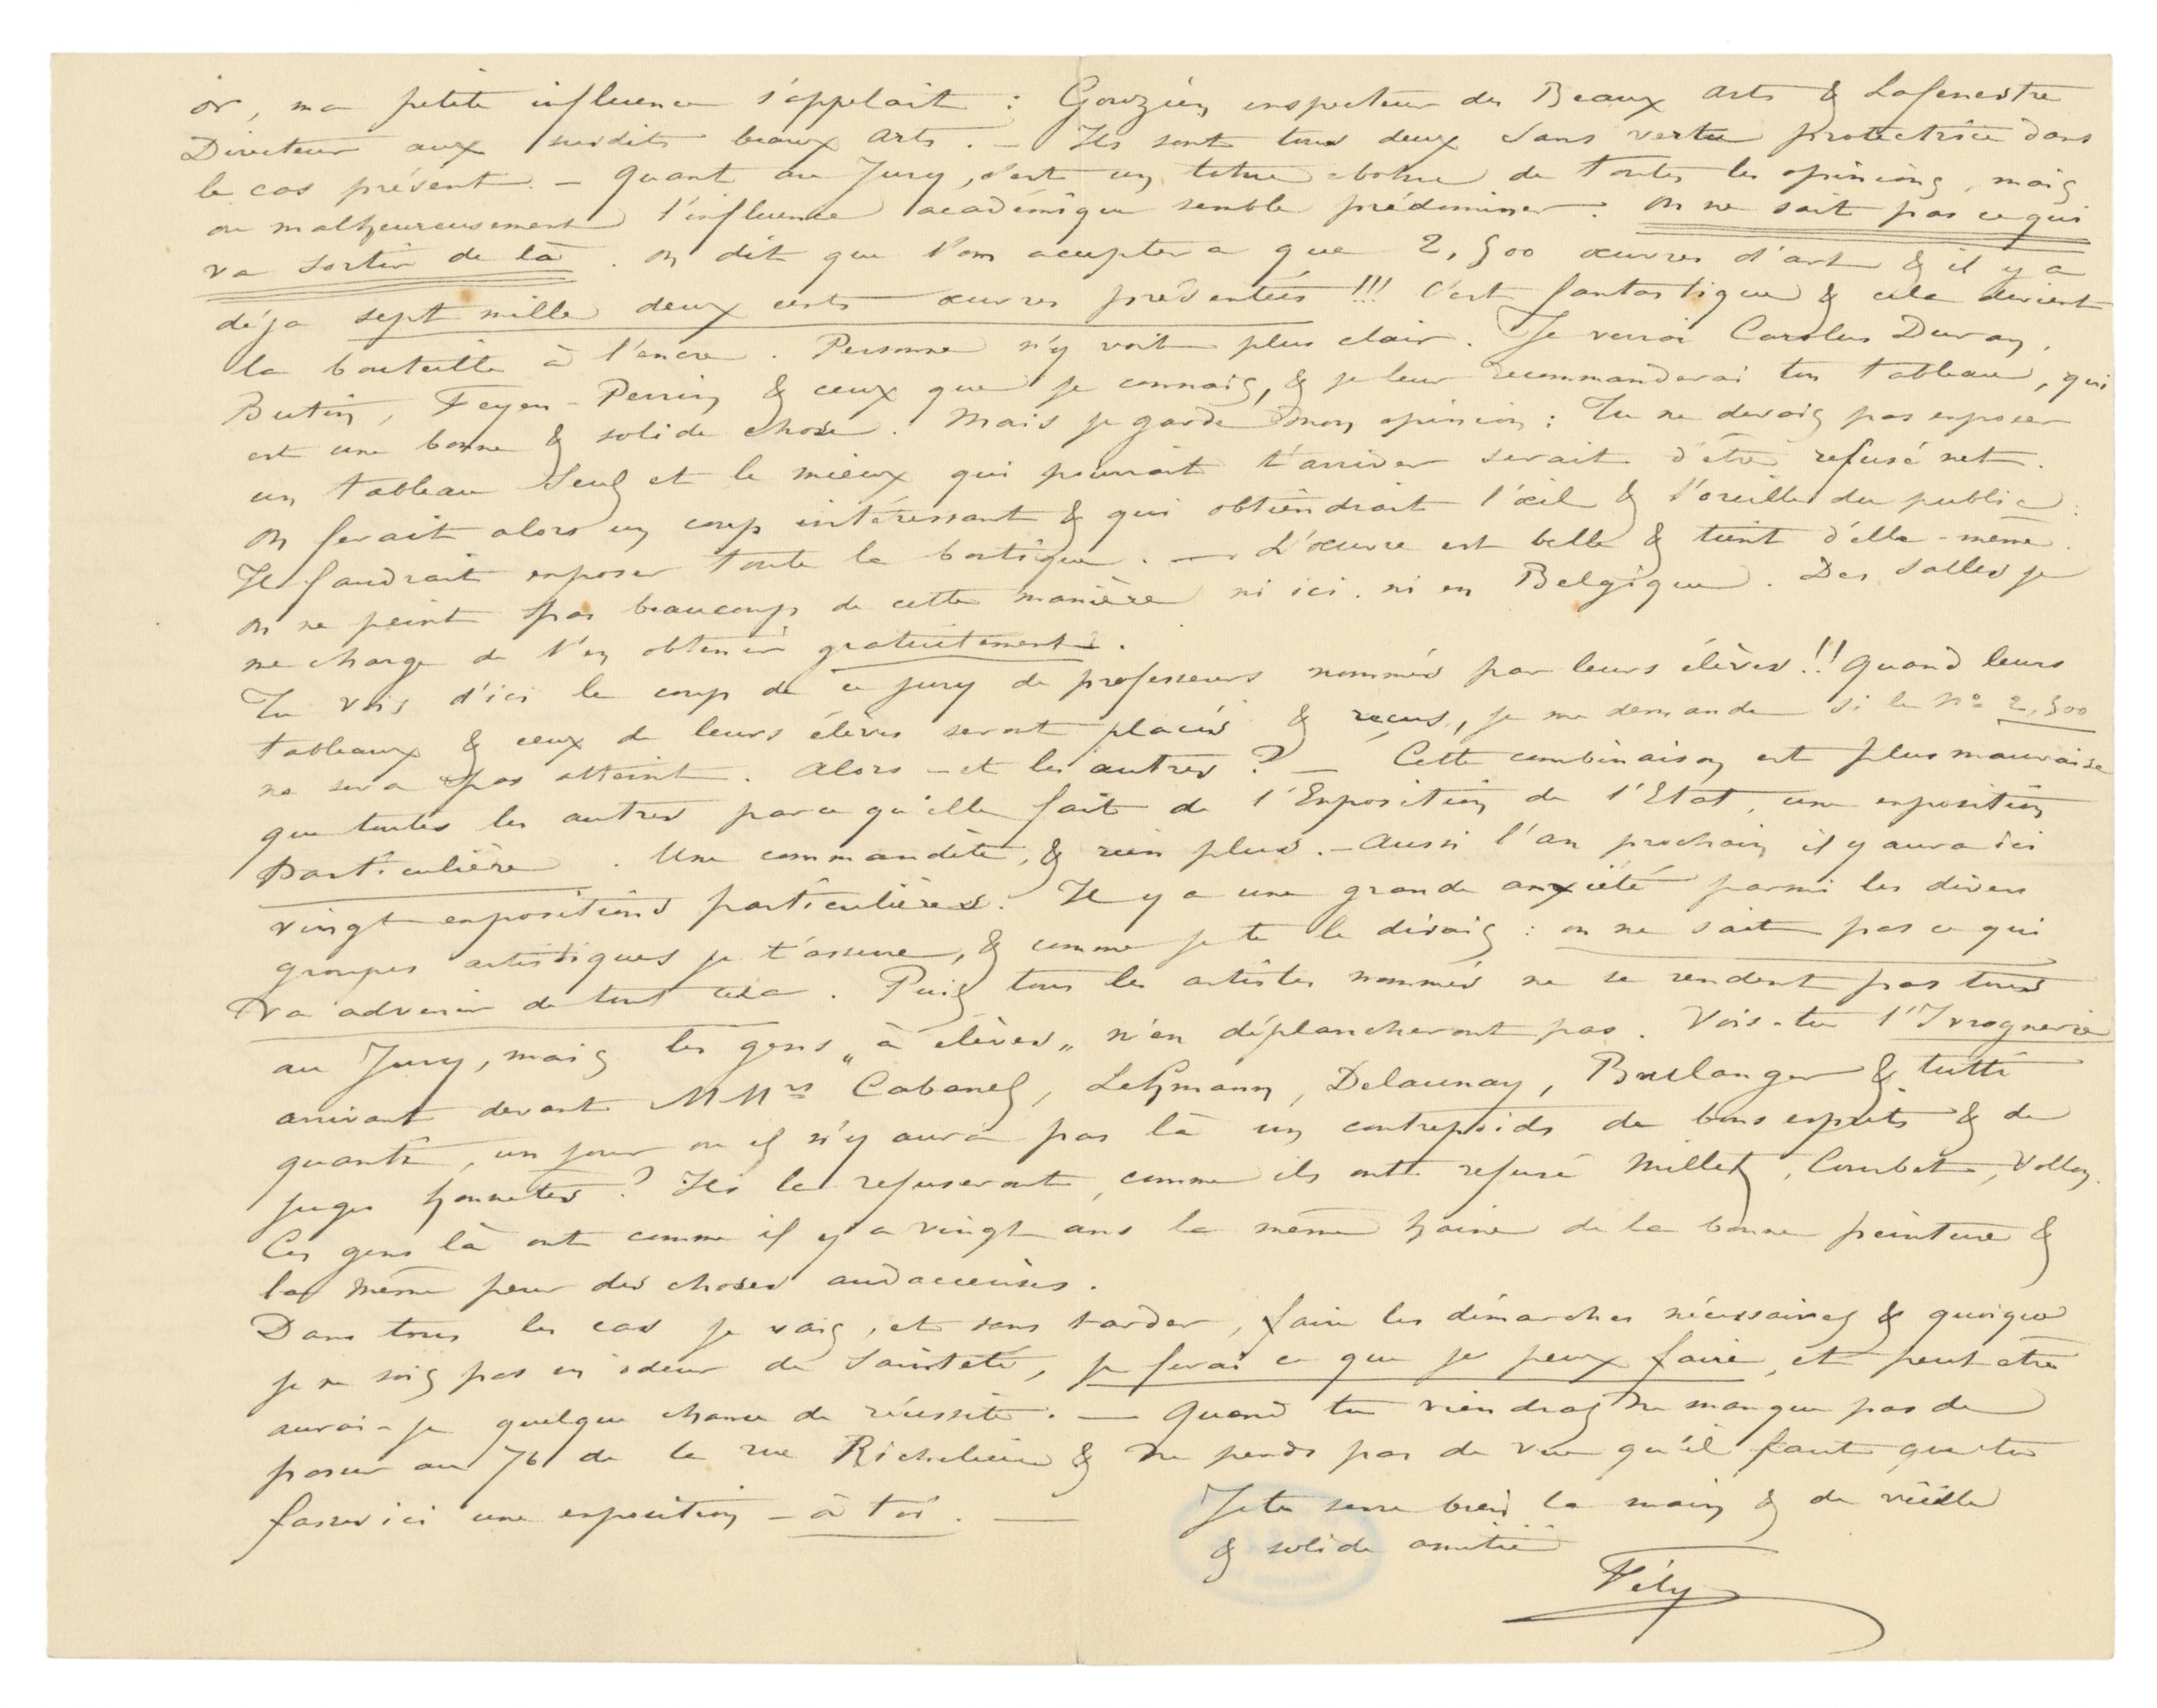 or, ma petite influence s'appelait : Gouzien, inspecteur des Beaux Arts & Lafenestre
Directeur aux susdits beaux arts. – Ils sont tous deux sans vertu protectrice dans
le cas présent. – Quant au Jury, c'est un tohu-bohu de toutes les opinions, mais
ou malheureusement l'influence académique semble prédominer. On ne sait pas ce qui
va sortir de là. On dit que l'on acceptera que 2,500 œuvres d'art & il y a
déja sept mille deux cents œuvres présentées !!! C'est fantastique & cela devient
la bouteille à l'encre. Personne n'y voit plus clair. Je verrai Carolus Duran,
Butin, Feyen-Perrin & ceux que je connais, & je leur recommanderai ton tableau, qui
est une bonne & solide chose. Mais je garde mon opinion : Tu ne devais pas exposer
un tableau seul et le mieux qui pourrait t'arriver serait d'être refusé net.
On ferait alors un coup intéressant & qui obtiendrait l'œil & l'oreille du public.
Il faudrait exposer toute la boutique. — L'œuvre est belle & tient d'elle-même.
On ne peint pas beaucoup de cette manière ni ici, ni en Belgique. Des salles je
me charge de t'en obtenir gratuitement.
Tu vois d'ici le coup de ce jury de professeurs nommés par leurs élèves !! Quand leurs
tableaux & ceux de leurs élèves seront placés & reçus, je me demande si le N° 2,500
ne sera pas atteint. Alors – et les autres ? – Cette combinaison est plus mauvaise
que toutes les autres parce qu'elle fait de l'Exposition de l'Etat, une exposition
particulière. Une commandite, & rien plus. – Aussi l'an prochain il y aura ici
vingt expositions particulières. Il y a une grande anxiété parmi les divers
groupes artistiques je t'assure, & comme je te le disais : on ne sait pas ce qui
va advenir de tout cela. Puis tous les artistes nommés ne se rendent pas tous
au Jury, mais les gens „à élèves„ n'en déplancheront pas. Vois-tu l'Ivrognerie
arrivant devant MMrs Cabanel, Lehmann, Delaunay, Boulanger & tutti
quanti, un jour ou il n'y aura pas là un contrepoids de bons esprits & de
juges honnetes ? Ils la refuseront, comme ils ont refusé Millet, Courbet, Vollon.
Ces gens là ont comme il y a vingt ans la même haine de la bonne peinture &
la même peur des choses audacieuses.
Dans tous les cas je vais, et sans tarder, faire les démarches nécessaires & quoique
je ne sois pas en odeur de sainteté, je ferai ce que je peux faire, et peut etre
aurai-je quelque chance de réussite. — Quand tu viendras ne manque pas de
passer au 76 de la rue Richelieu & ne perds pas de vue qu'il faut que tu
fasses ici une exposition – à toi. —
Je te serre bien la main & de vieille
& solide amitié
Fély